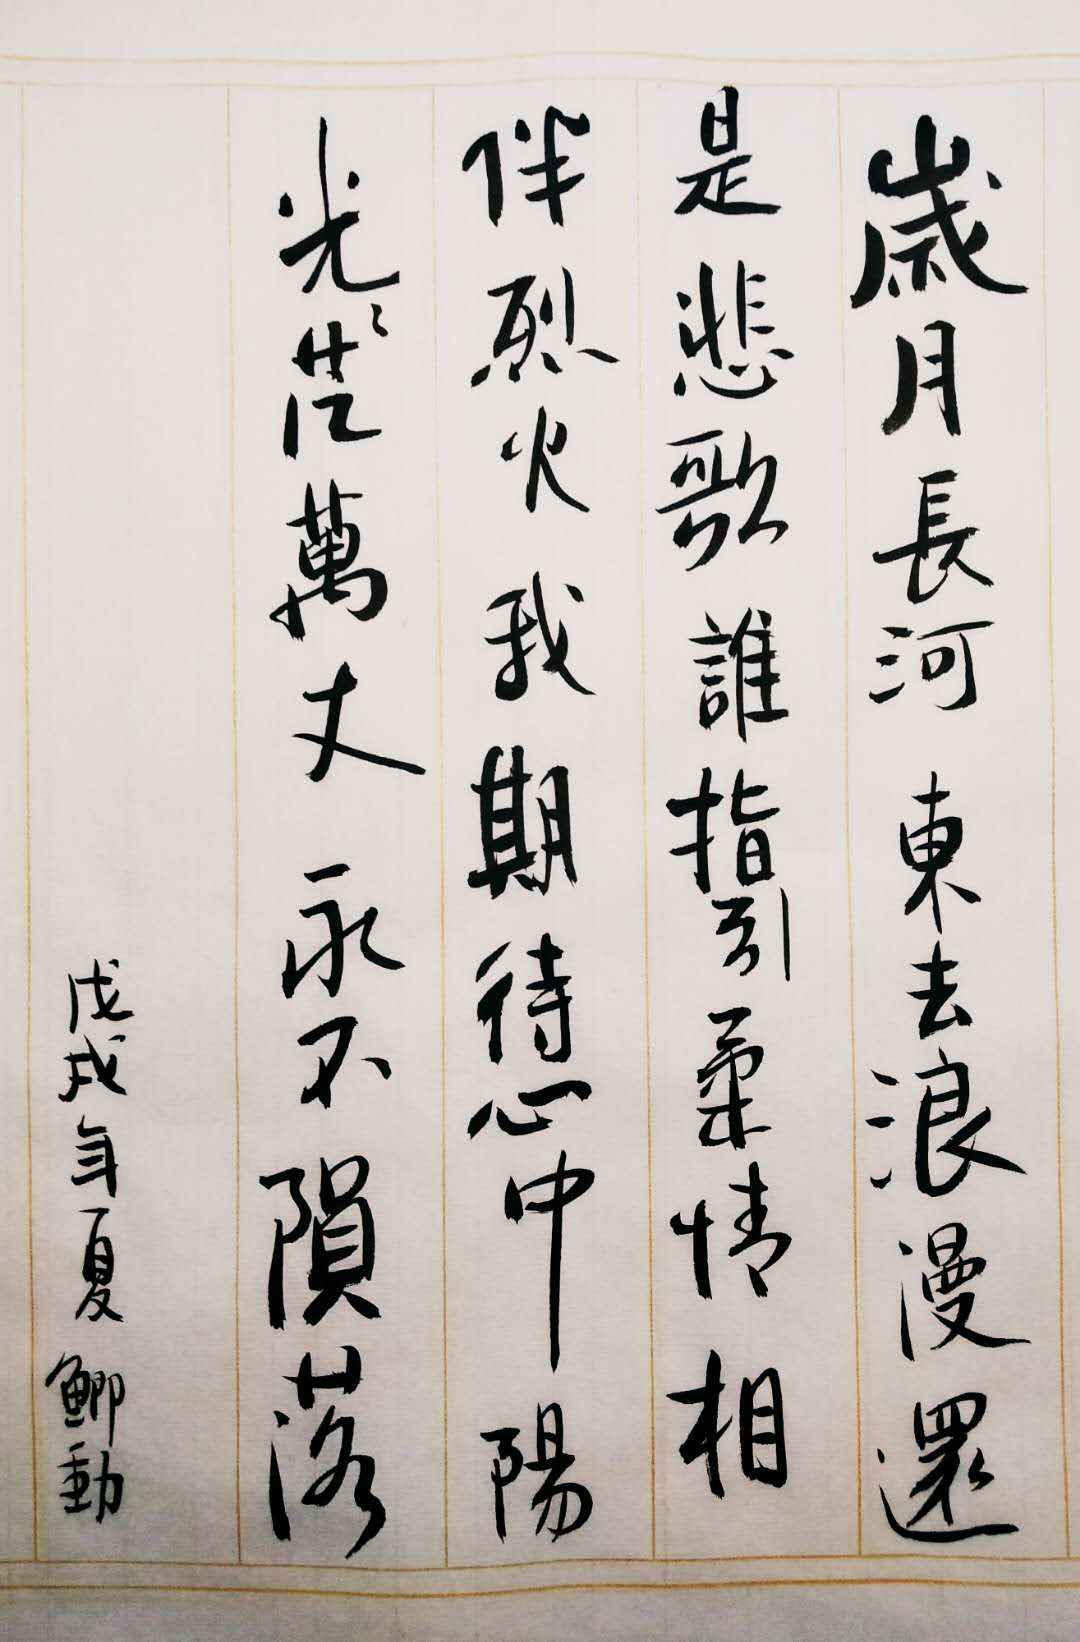 歲月長河東去浪漫還
是悲歌誰指引柔情相
伴烈火我期待心中陽
光光芒萬丈永不隕落
戊戌年夏鯽動